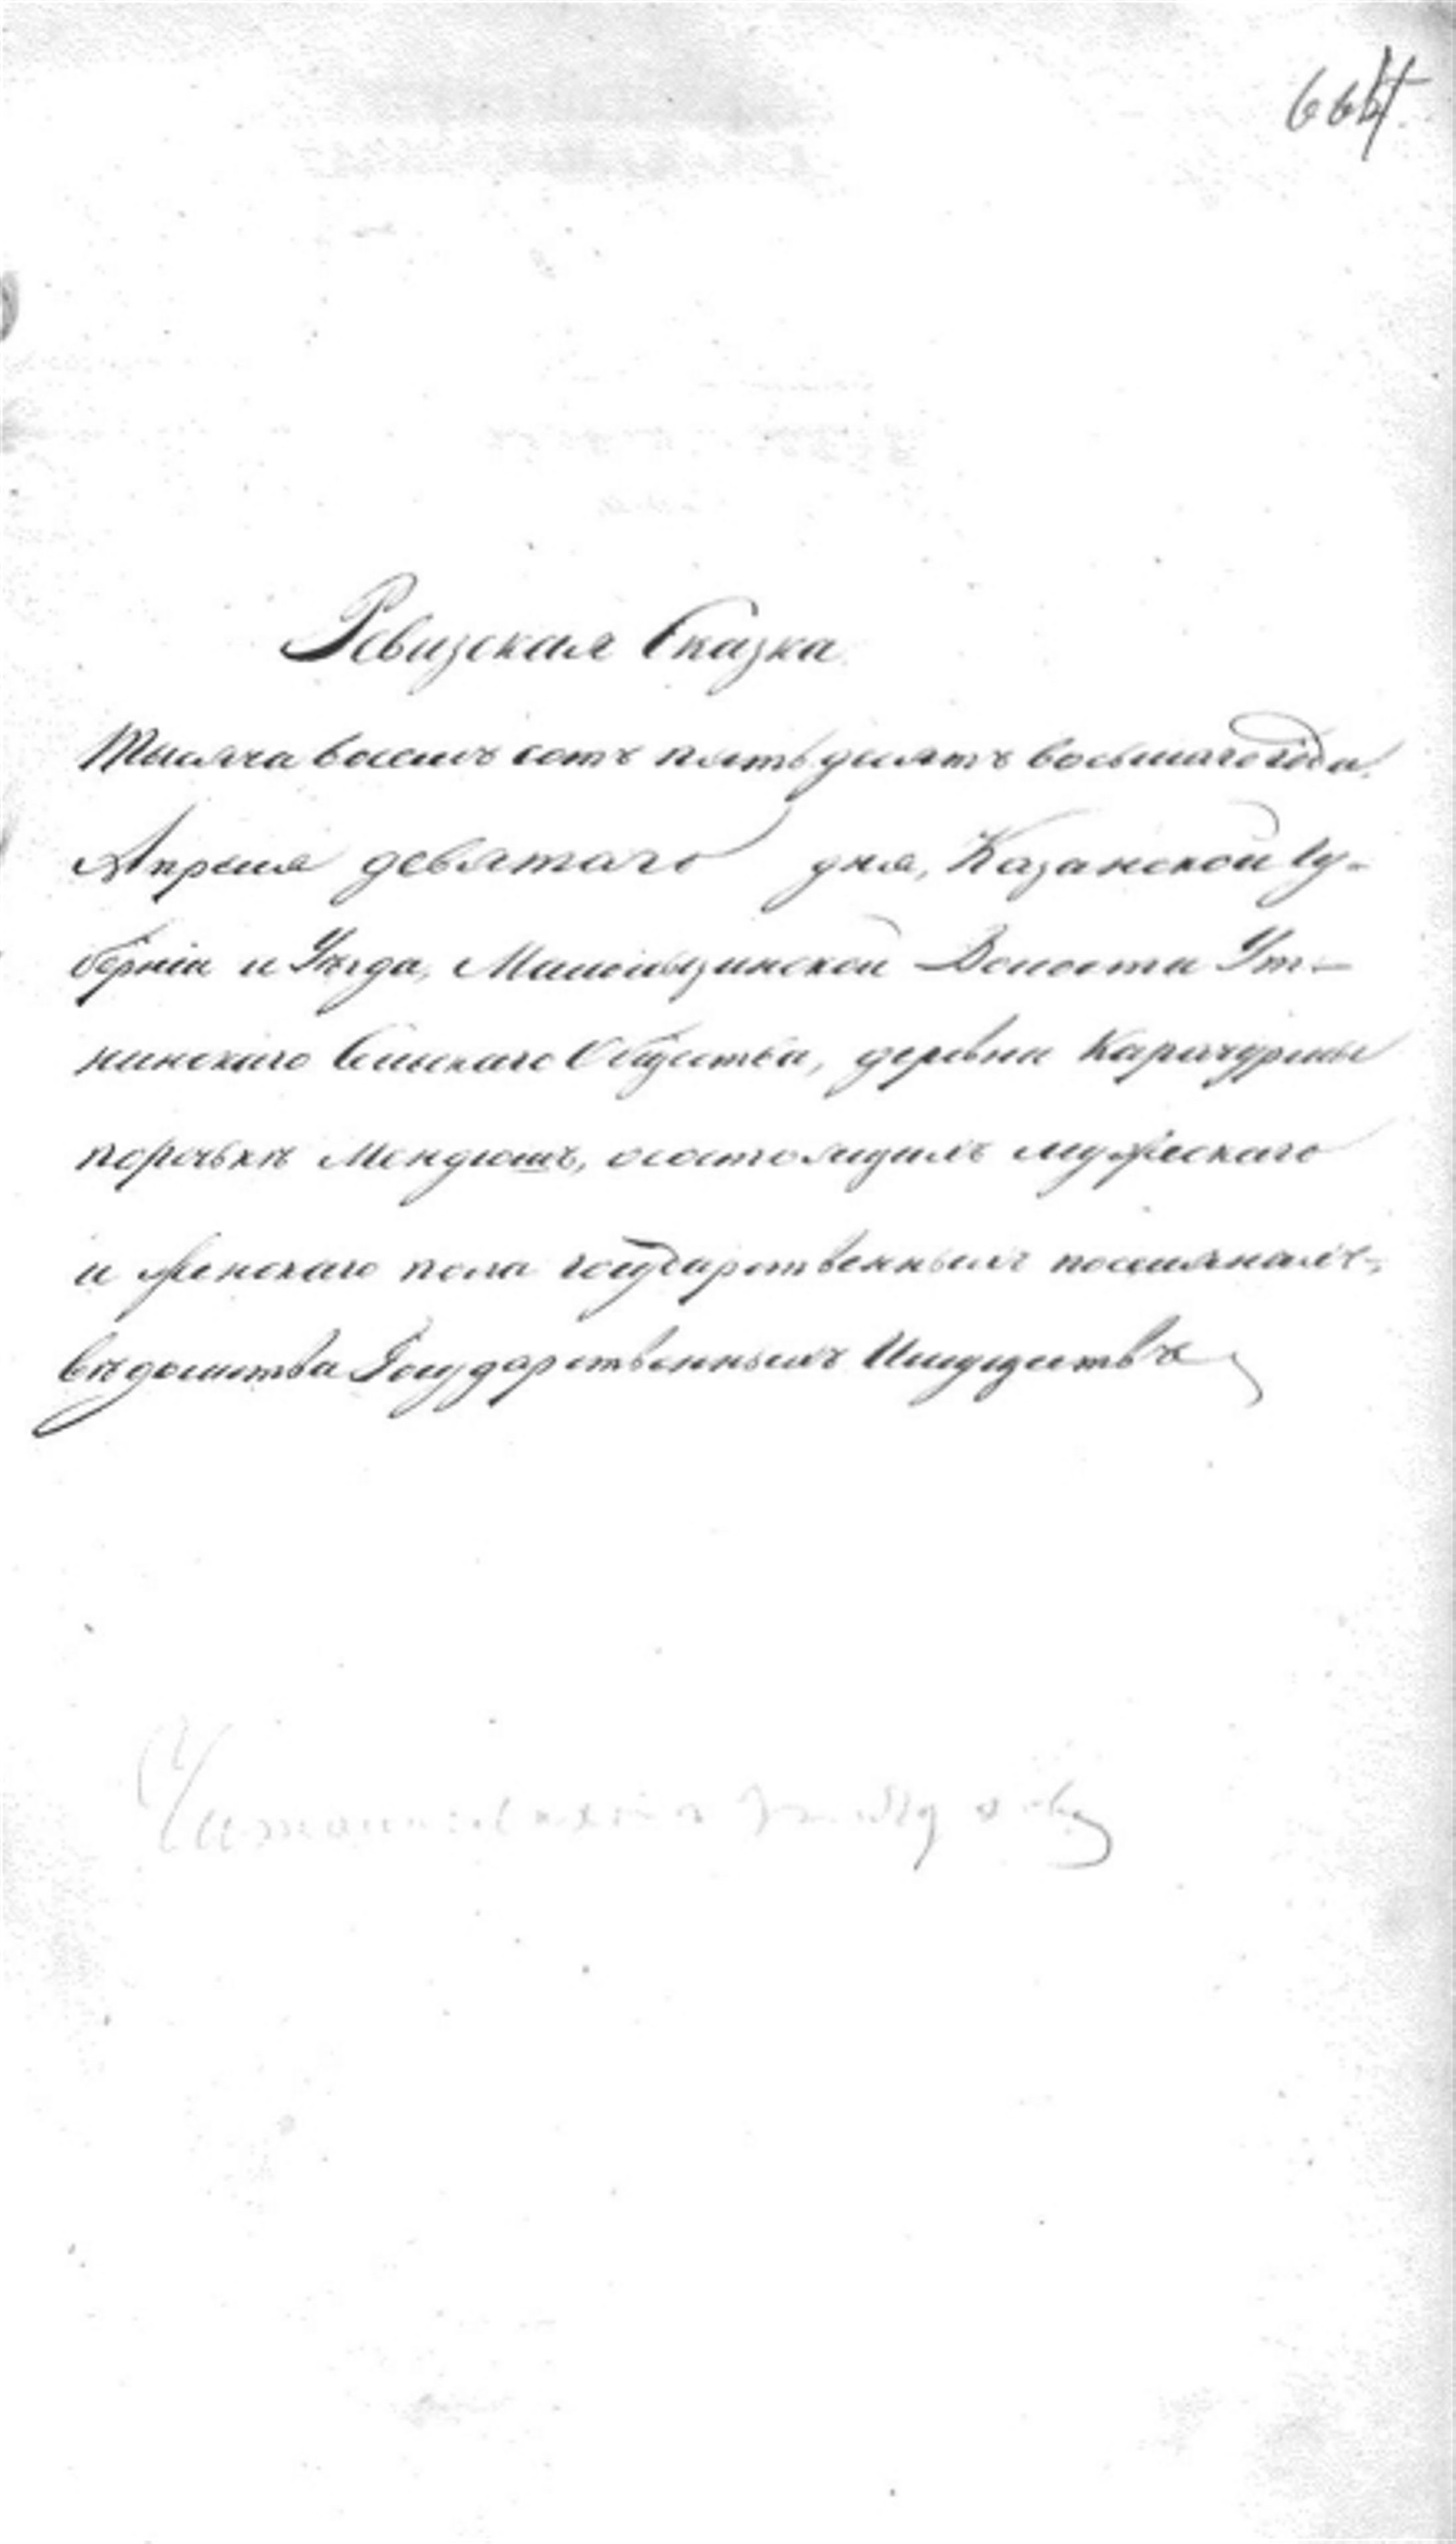 Ревизская Сказка
Тысяча восемь сотъ пятьдесятъ восьмаго года
Апреля девятаго дня, Казанской Гу-
берніи и Уѣзда, Мамсинской Волости
нинскаго Сельскаго Общества, деревни Карачурины
порѣчькѣ Мендюшъ, осостоящихъ мужескаго
и женскаго пола государственныхъ поселянахъ
вѣдомства Государственныхъ Имуществъ